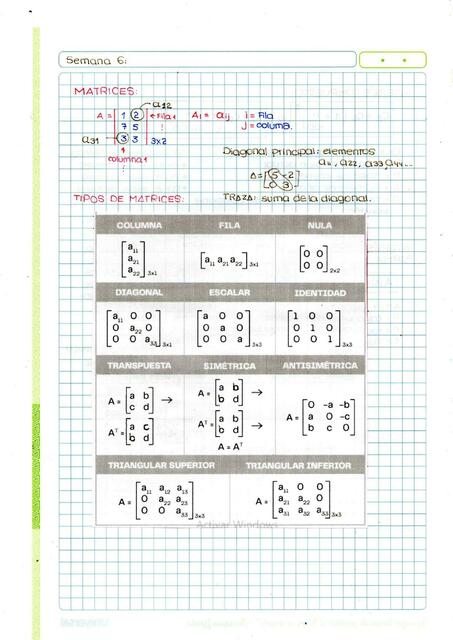 Semana 6:
MATRICES:
a12
A = | 1 2 | ← Fila 1
7 5
a31 3 3 3x2
1
columna 1
A1 = aij i = Fila
j = columa.
Diagonal principal: elementos
a11, a22, a33, a44...
A = [5 -2
0 3]
TIPOS DE MATRICES: TRAZA: suma de la diagonal.
COLUMNA FILA NULA
[a11
a21
a22]3x1
[a11 a21 a22]3x1
[0 0
0 0]2x2
DIAGONAL ESCALAR IDENTIDAD
[a11 0 0
0 a22 0
0 0 a33]3x1
[a 0 0
0 a 0
0 0 a]3x3
[1 0 0
0 1 0
0 0 1]3x3
TRANSPUESTA SIMÉTRICA ANTISIMÉTRICA
A = [a b
c d] →
AT = [a c
b d]
A = [a b
b d] →
AT = [a b
b d] →
A = AT
A = [0 -a -b
a 0 -c
b c 0]
TRIANGULAR SUPERIOR TRIANGULAR INFERIOR
A = [a11 a12 a13
0 a22 a23
0 0 a33]3x3
A = [a11 0 0
a21 a22 0
a31 a32 a33]3x3
Activar Windows